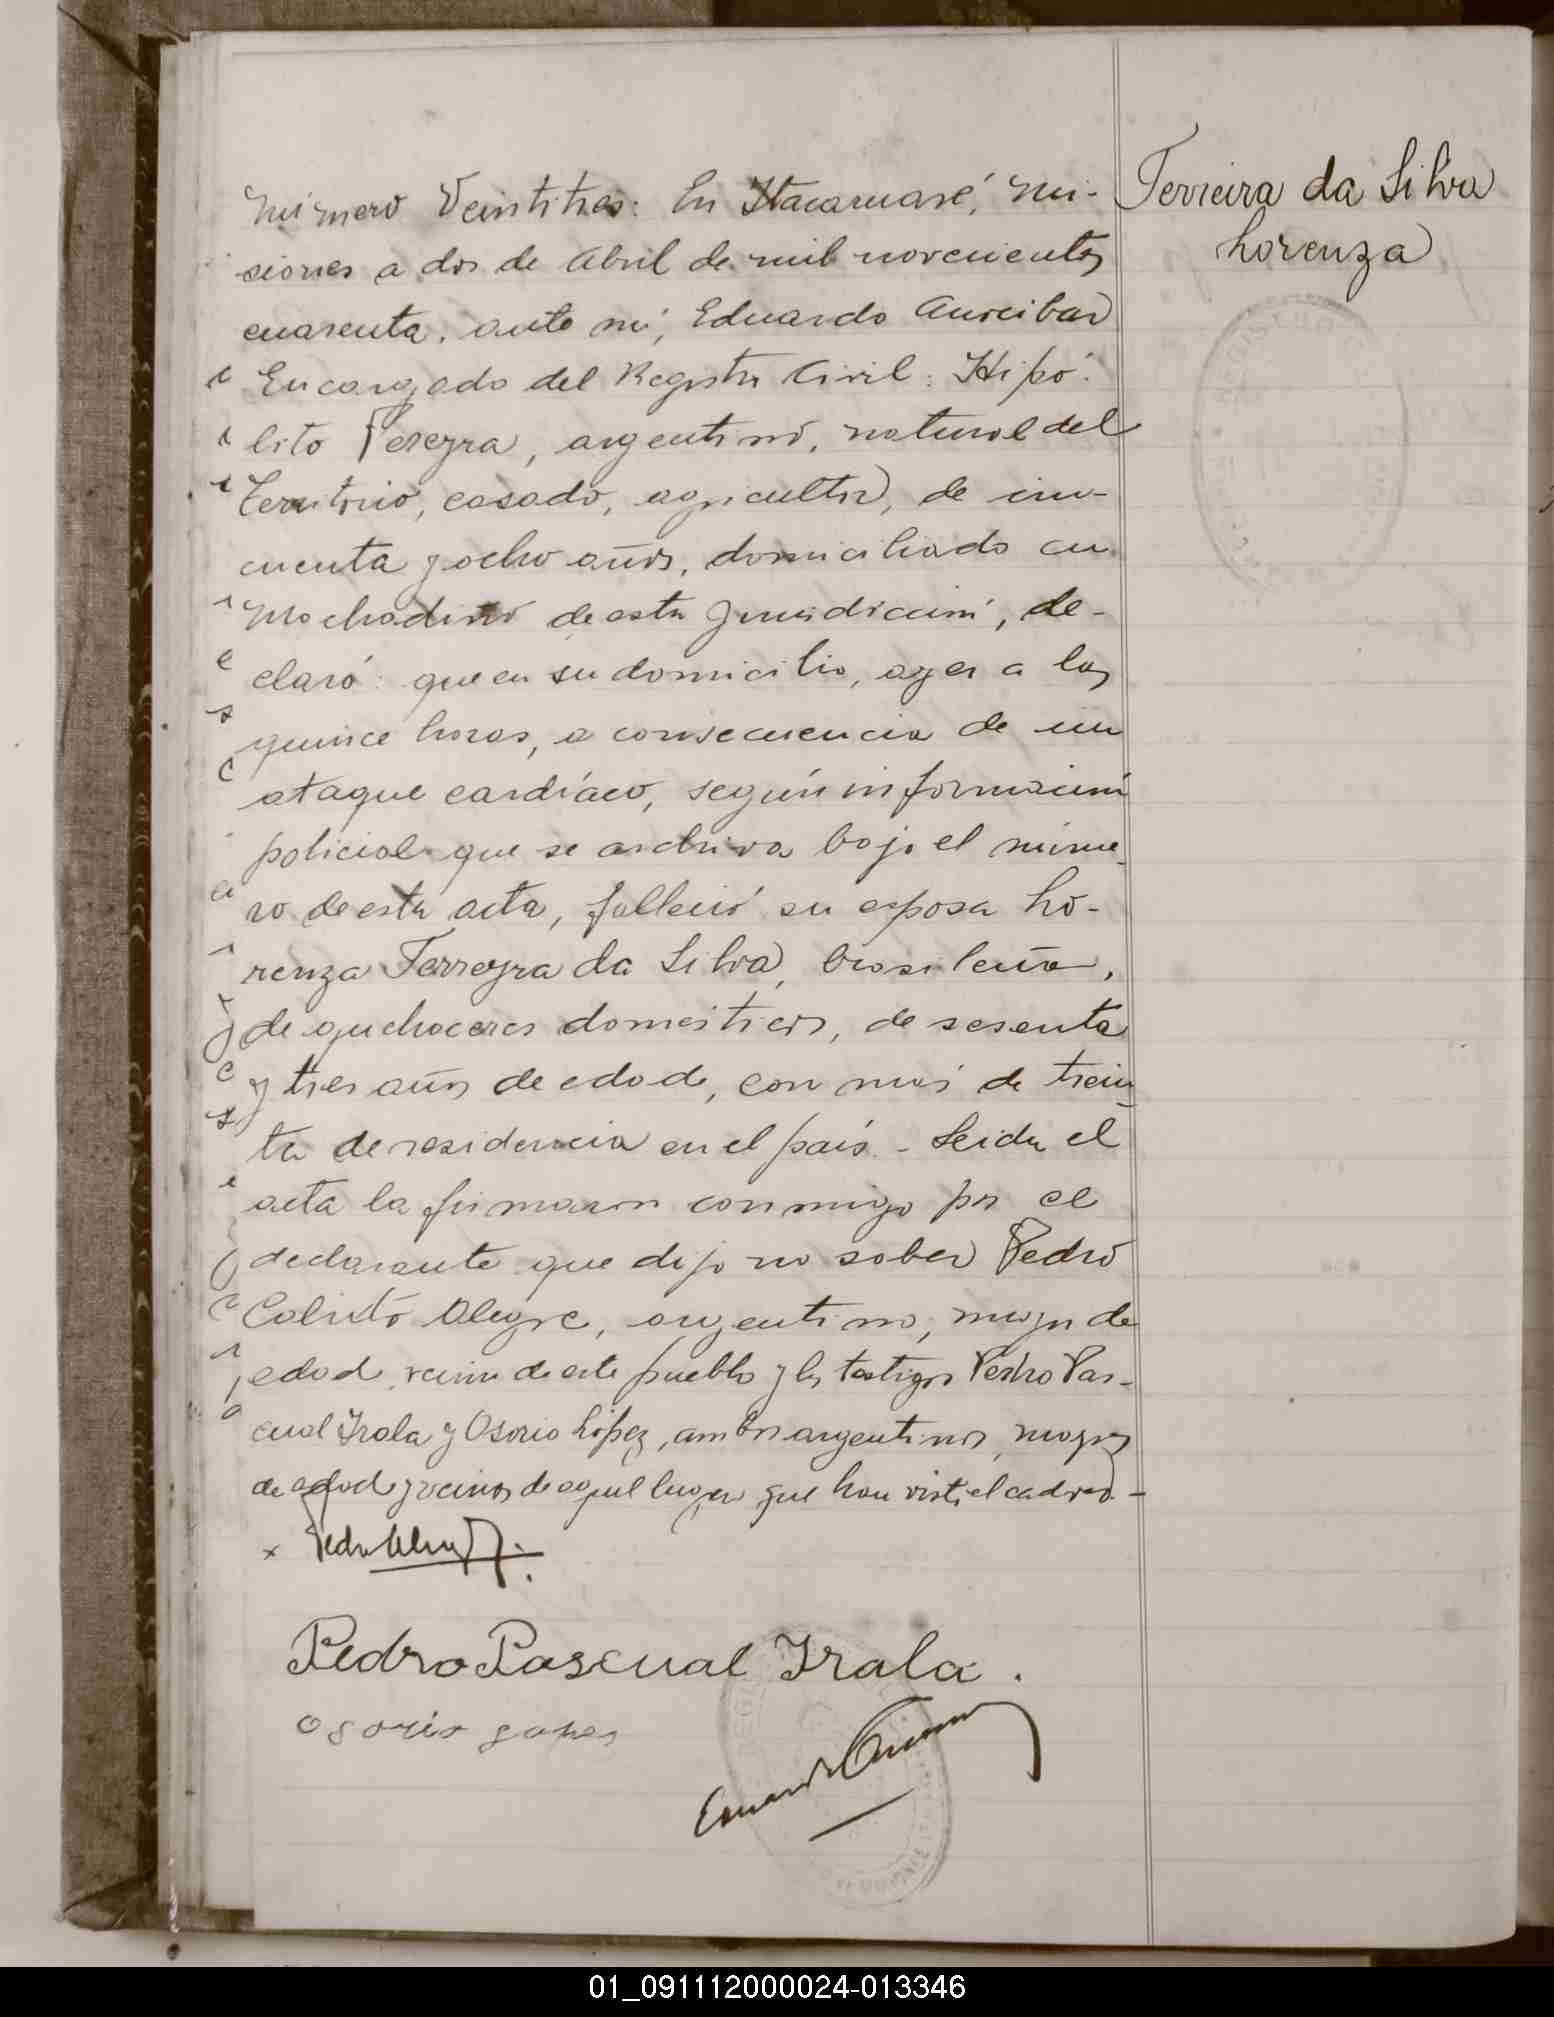 Ferreira da Silva
Lorenza
Número Veintitrés: En Itacaruaré, Mi-
siones a dos de Abril de mil novecientos
cuarenta, ante mí, Eduardo Aureibar
Encargado del Registro Civil: Hipó-
lito Pereyra, argentino, natural del
Territorio, casado, agricultor, de cin-
cuenta y ocho años, domiciliado en
Machadinho de esta Jurisdicción, de-
claró: que en su domicilio, ayer a las
quince horas, a consecuencia de un
ataque cardíaco, según información
policial que se archiva bajo el núme-
ro de esta acta, falleció su esposa Lo-
renza Ferreyra da Silva, brasileña,
de quehaceres domésticos, de sesenta
y tres años de edad, con más de trein-
ta de residencia en el país - Leída el
acta la firmaron conmigo por el
declarante que dijo no saber Pedro
Calixto Alegre, argentino, mayor de
edad, vecino de este pueblo y los testigos Pedro Pas-
cual Irala y Osorio López, ambos argentinos, mayores
de edad y vecinos de aquel lugar que han visto el cadáver.-
x Pedro
Pedro Pascual Irala.
Osorio Lopes
Eduardo
01_091112000024-013346